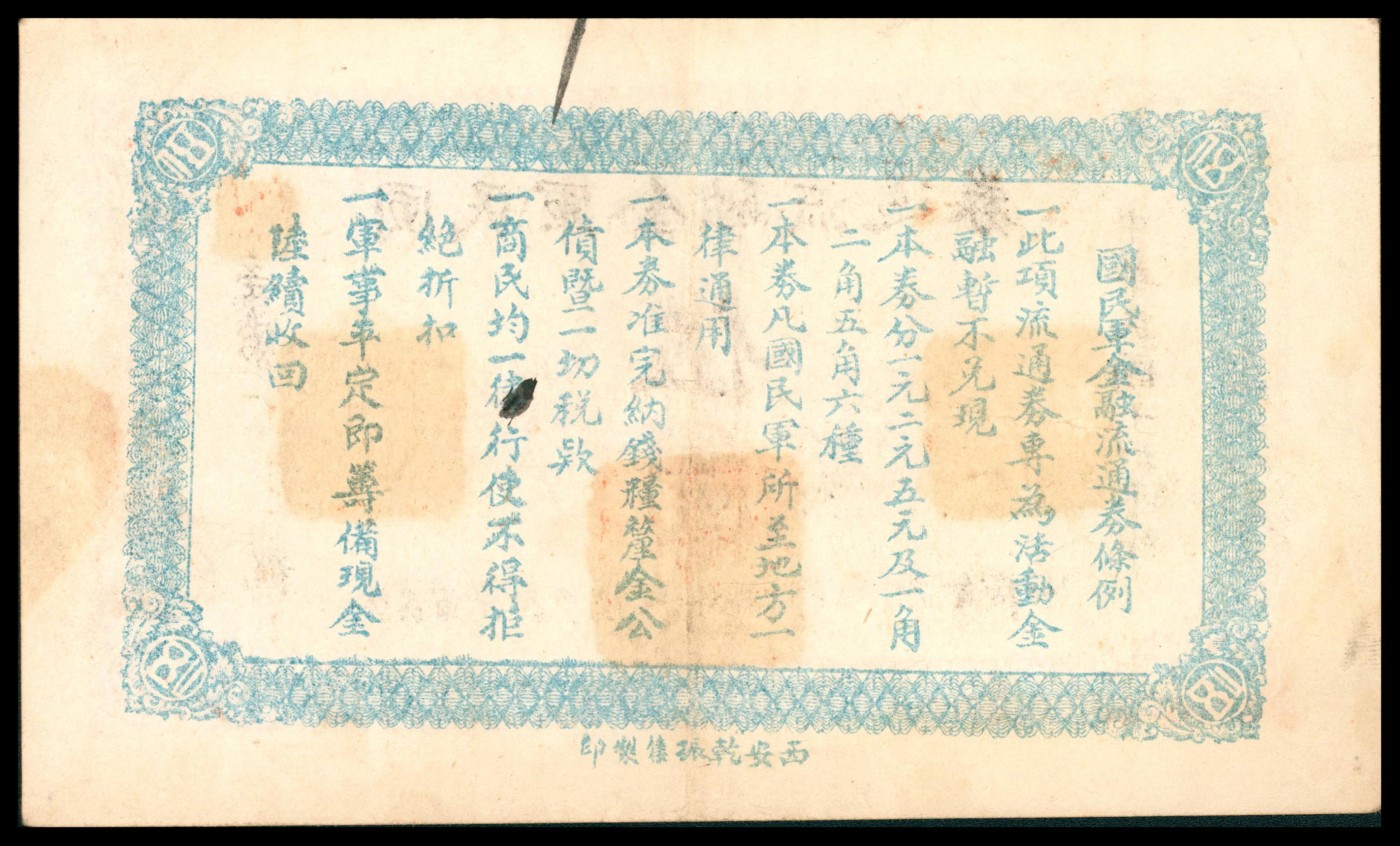 國民軍金融流通券條例
一此項流通券專為活動金
融暫不兌現
一本券分一元二元五元及一角
二角五角六種
一本券凡國民軍所至地方一
律通用
一本券准完納錢糧釐金公
債暨一切税欵
一商民均一律行使不得拒
絕折扣
一軍事平定即籌備現金
陸續收回
西安乾振集製印